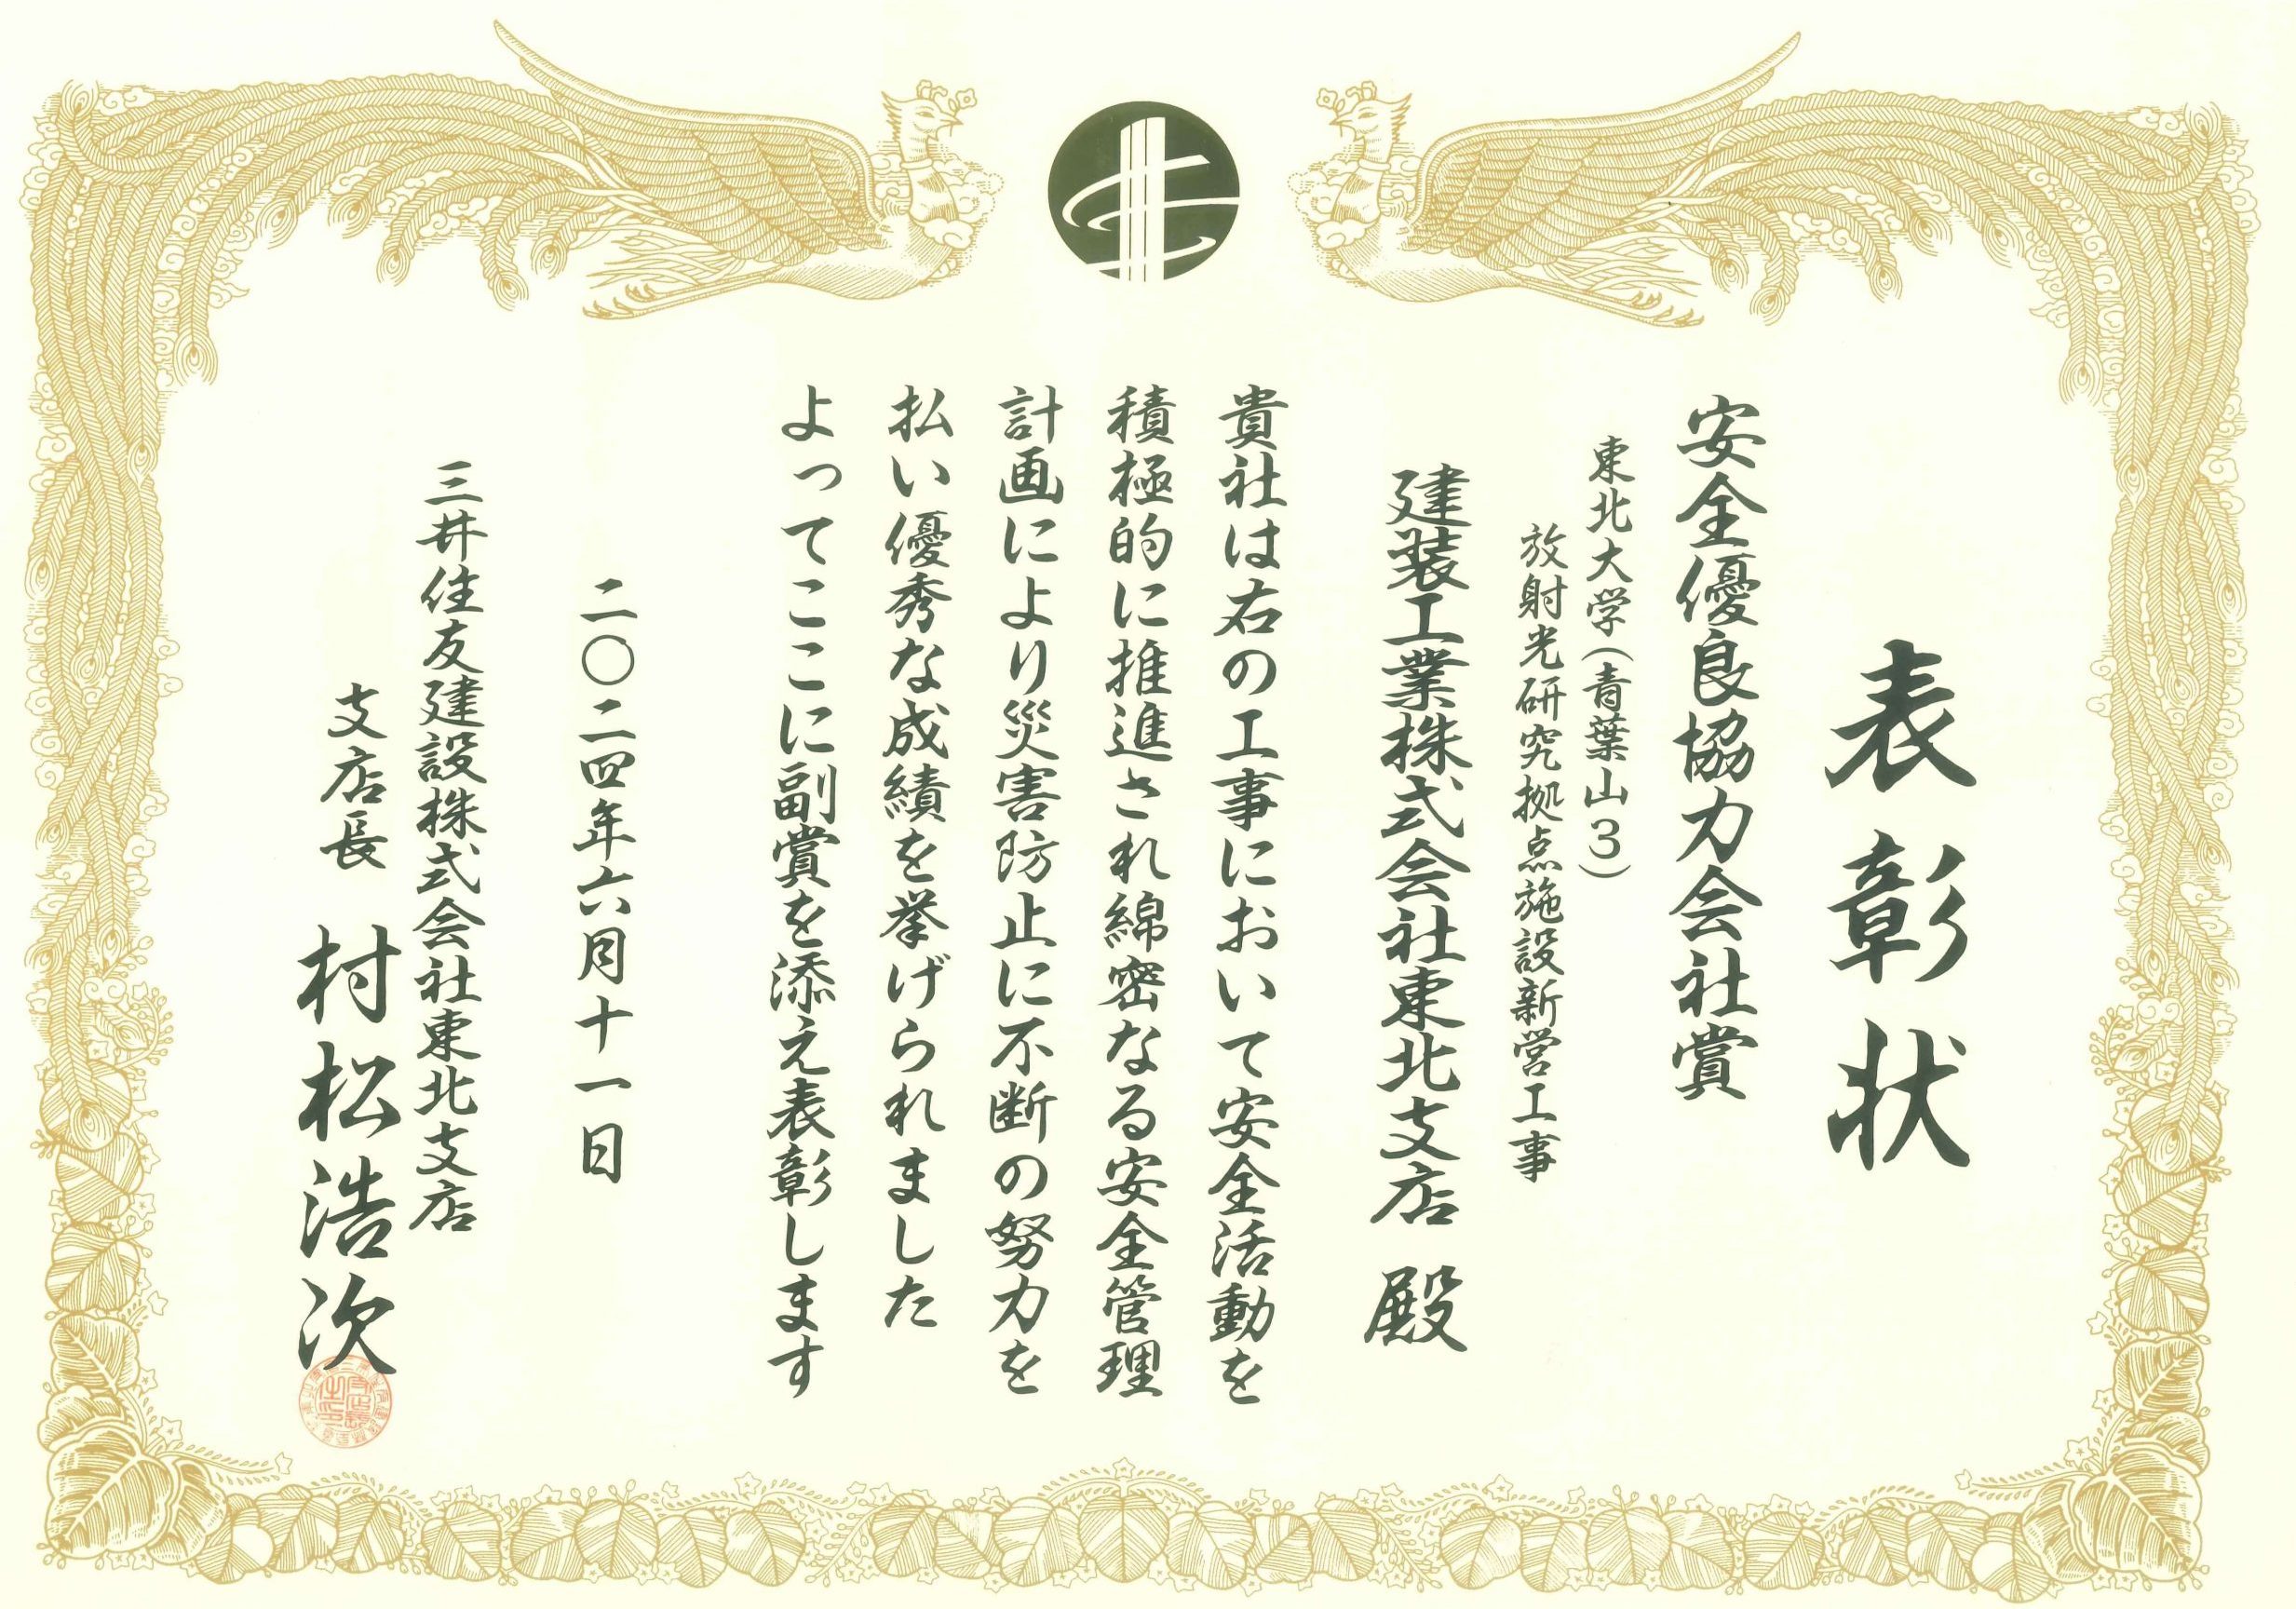 表彰状
安全優良協力会社賞
東北大学（青葉山３）
放射光研究拠点施設新営工事
建装工業株式会社東北支店 殿
貴社は右の工事において安全活動を
積極的に推進され綿密なる安全管理
計画により災害防止に不断の努力を
払い優秀な成績を挙げられました
よってここに副賞を添え表彰します
二〇二四年六月十一日
三井住友建設株式会社東北支店
支店長 村松浩次